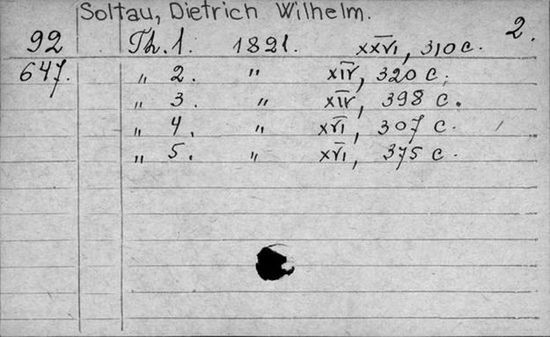 Soltau, Dietrich Wilhelm.
2.
92 Th. 1. 1821. XXVI, 310 c.
647. „ 2. " XIV, 320 c.
„ 3. " XIV, 398 c.
„ 4. " XVI, 307 c.
„ 5. " XVI, 375 c.